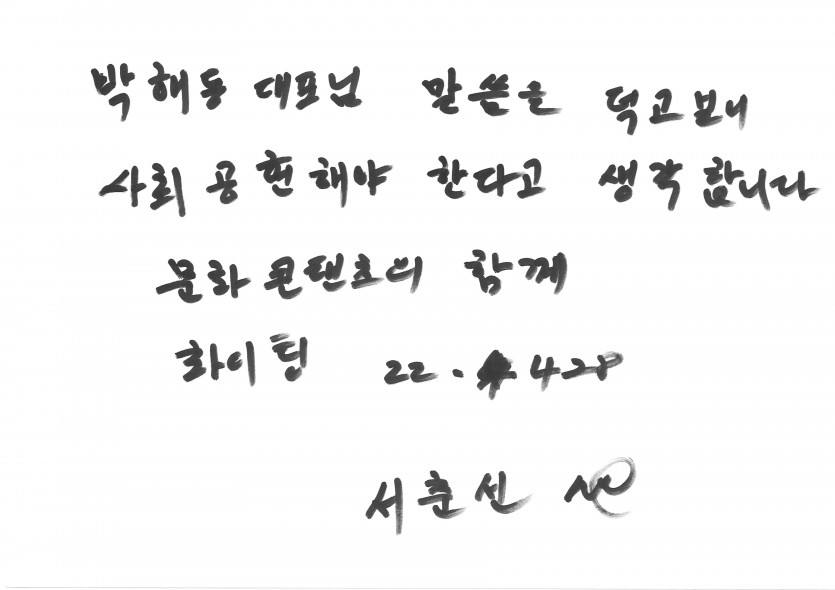 박해동 대표님 말씀을 덕고보니
사회 공헌해야 한다고 생각 합니다
문화콘텐츠의 함께
화이팅 22. 4 28
서춘선